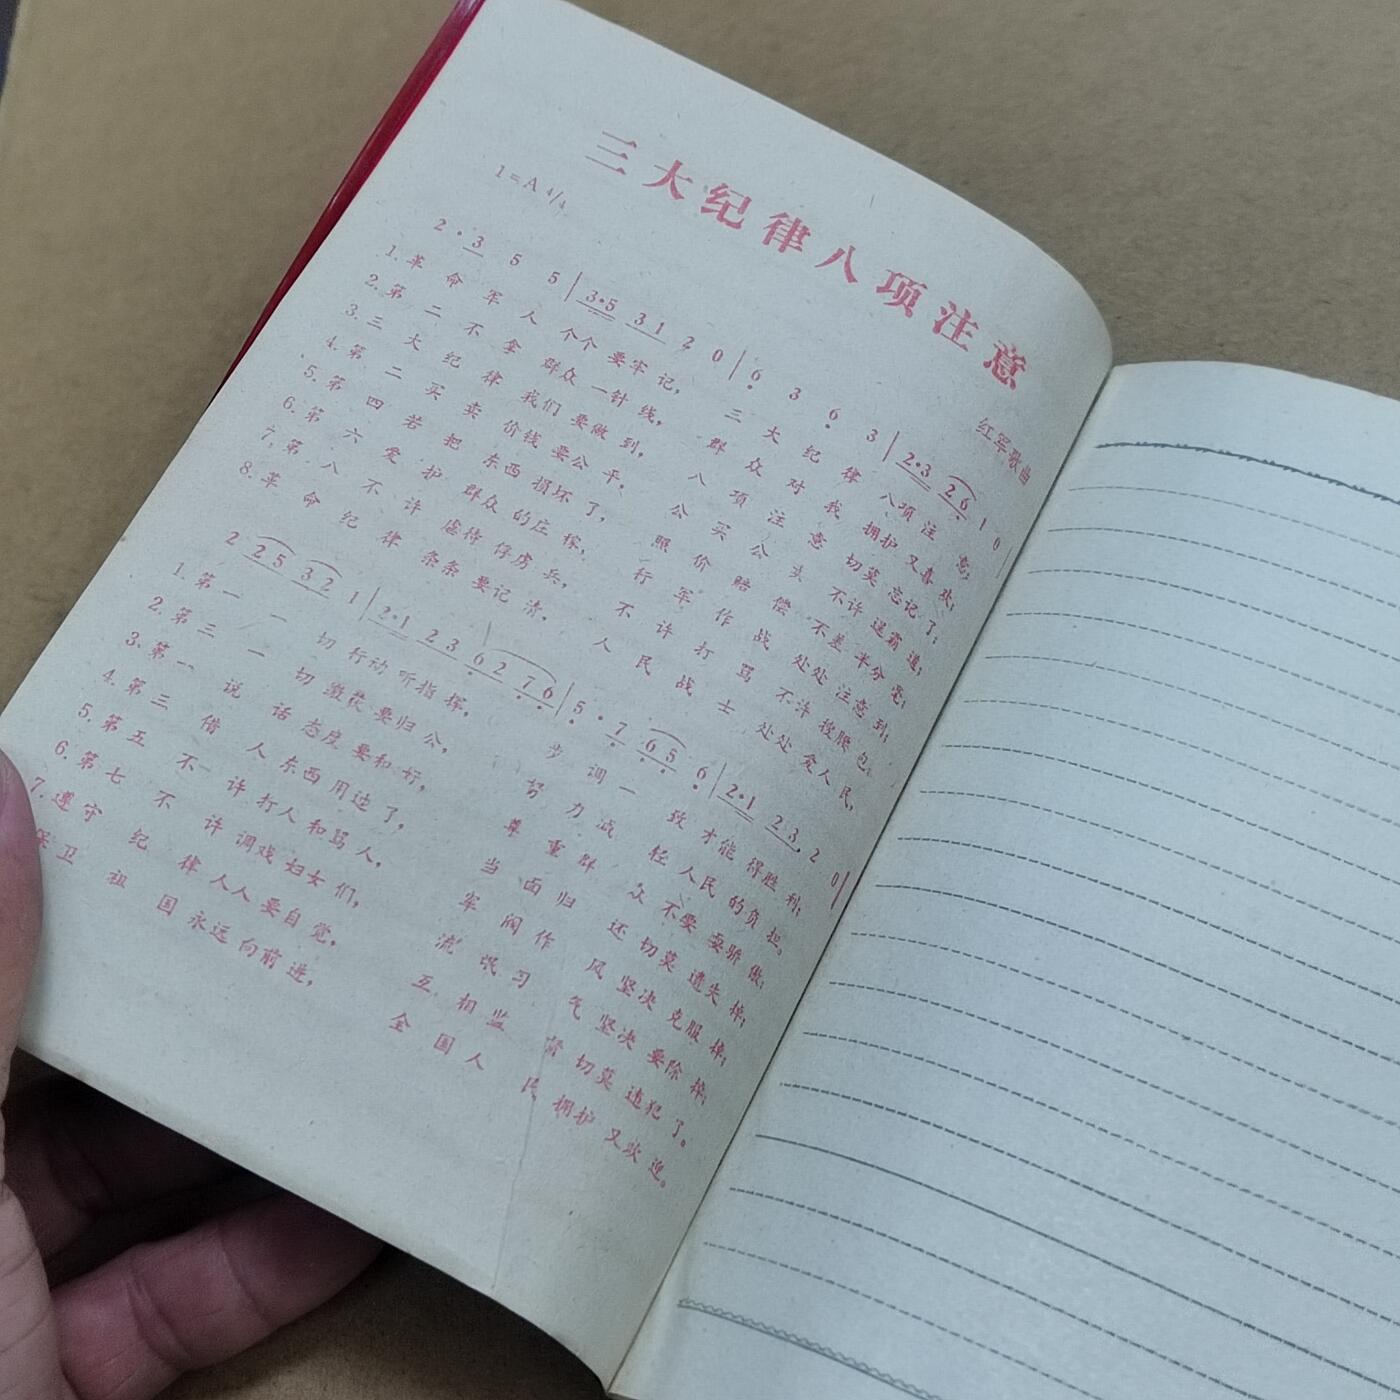 三大纪律八项注意
1=A 4/4
红军歌曲
2·3 5 5 | 3·5 31 2 0 | 6 3 6 3 | 2·3 26 1 0 |
1.革命军人个个要牢记， 三大纪律八项注意；
2.第二不拿群众一针线， 群众对我拥护又喜欢；
3.三大纪律我们要做到， 八项注意切莫忘记了；
4.第二买卖价钱要公平， 公买公卖不许逞霸道；
5.第四若把东西损坏了， 照价赔偿不差半分毫；
6.第六爱护群众的庄稼， 行军作战处处注意到；
7.第八不许虐待俘虏兵， 不许打骂不许搜腰包。
8.革命纪律条条要记清， 人民战士处处爱人民，
2 25 32 1 | 2·1 23 62 76 | 5·7 65 6 | 2·1 23, 2 0 |
1.第一一切行动听指挥， 步调一致才能得胜利；
2.第三一切缴获要归公， 努力减轻人民的负担。
3.第一说话态度要和好， 尊重群众不要耍骄傲；
4.第三借人东西用过了， 当面归还切莫遗失掉；
5.第五不许打人和骂人， 军阀作风坚决克服掉；
6.第七不许调戏妇女们， 流氓习气坚决要除掉；
7.遵守纪律人人要自觉， 互相监督切莫违犯了。
保卫祖国永远向前进， 全国人民拥护又欢迎。